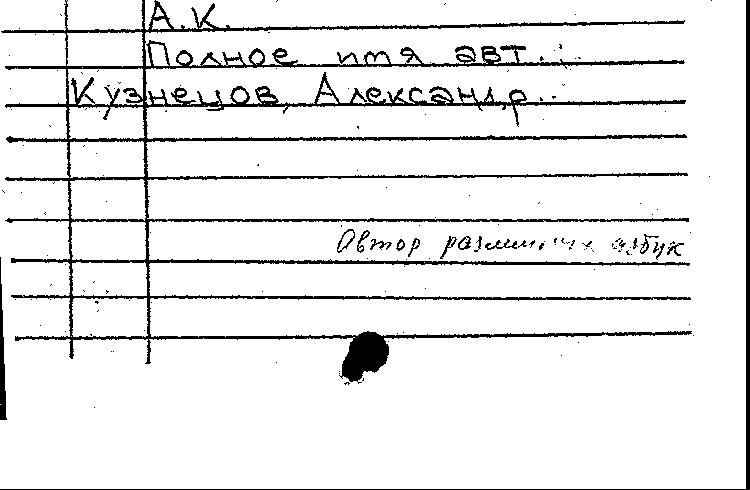 А.К.
Полное имя авт.:
Кузнецов, Александр..
Автор различных азбук